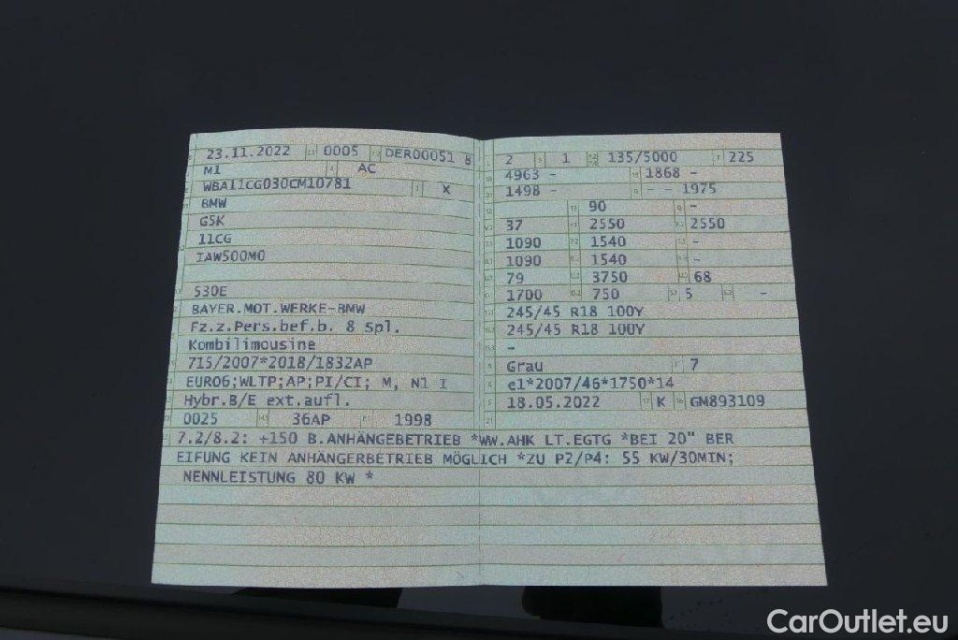 23.11.2022 0005 DER00051 8
M1 AC
WBA11CG030CM10781 X
BMW
G5K
11CG
IAW500M0
530E
BAYER.MOT.WERKE-BMW
Fz.z.Pers.bef.b. 8 Spl.
Kombilimousine
715/2007*2018/1832AP
EURO6;WLTP;AP;PI/CI; M, N1 I
Hybr.B/E ext.aufl.
0025 36AP 1998
2 1 135/5000 225
4963 - 1868 -
1498 - - - 1975
90 -
37 2550 2550
1090 1540 -
1090 1540 -
79 3750 68
1700 750 5 -
245/45 R18 100Y
245/45 R18 100Y
-
Grau 7
e1*2007/46*1750*14
18.05.2022 K GM893109
7.2/8.2: +150 B.ANHÄNGEBETRIEB *WW.AHK LT.EGTG *BEI 20" BER
EIFUNG KEIN ANHÄNGERBETRIEB MÖGLICH *ZU P2/P4: 55 KW/30MIN;
NENNLEISTUNG 80 KW *
CarOutlet.eu